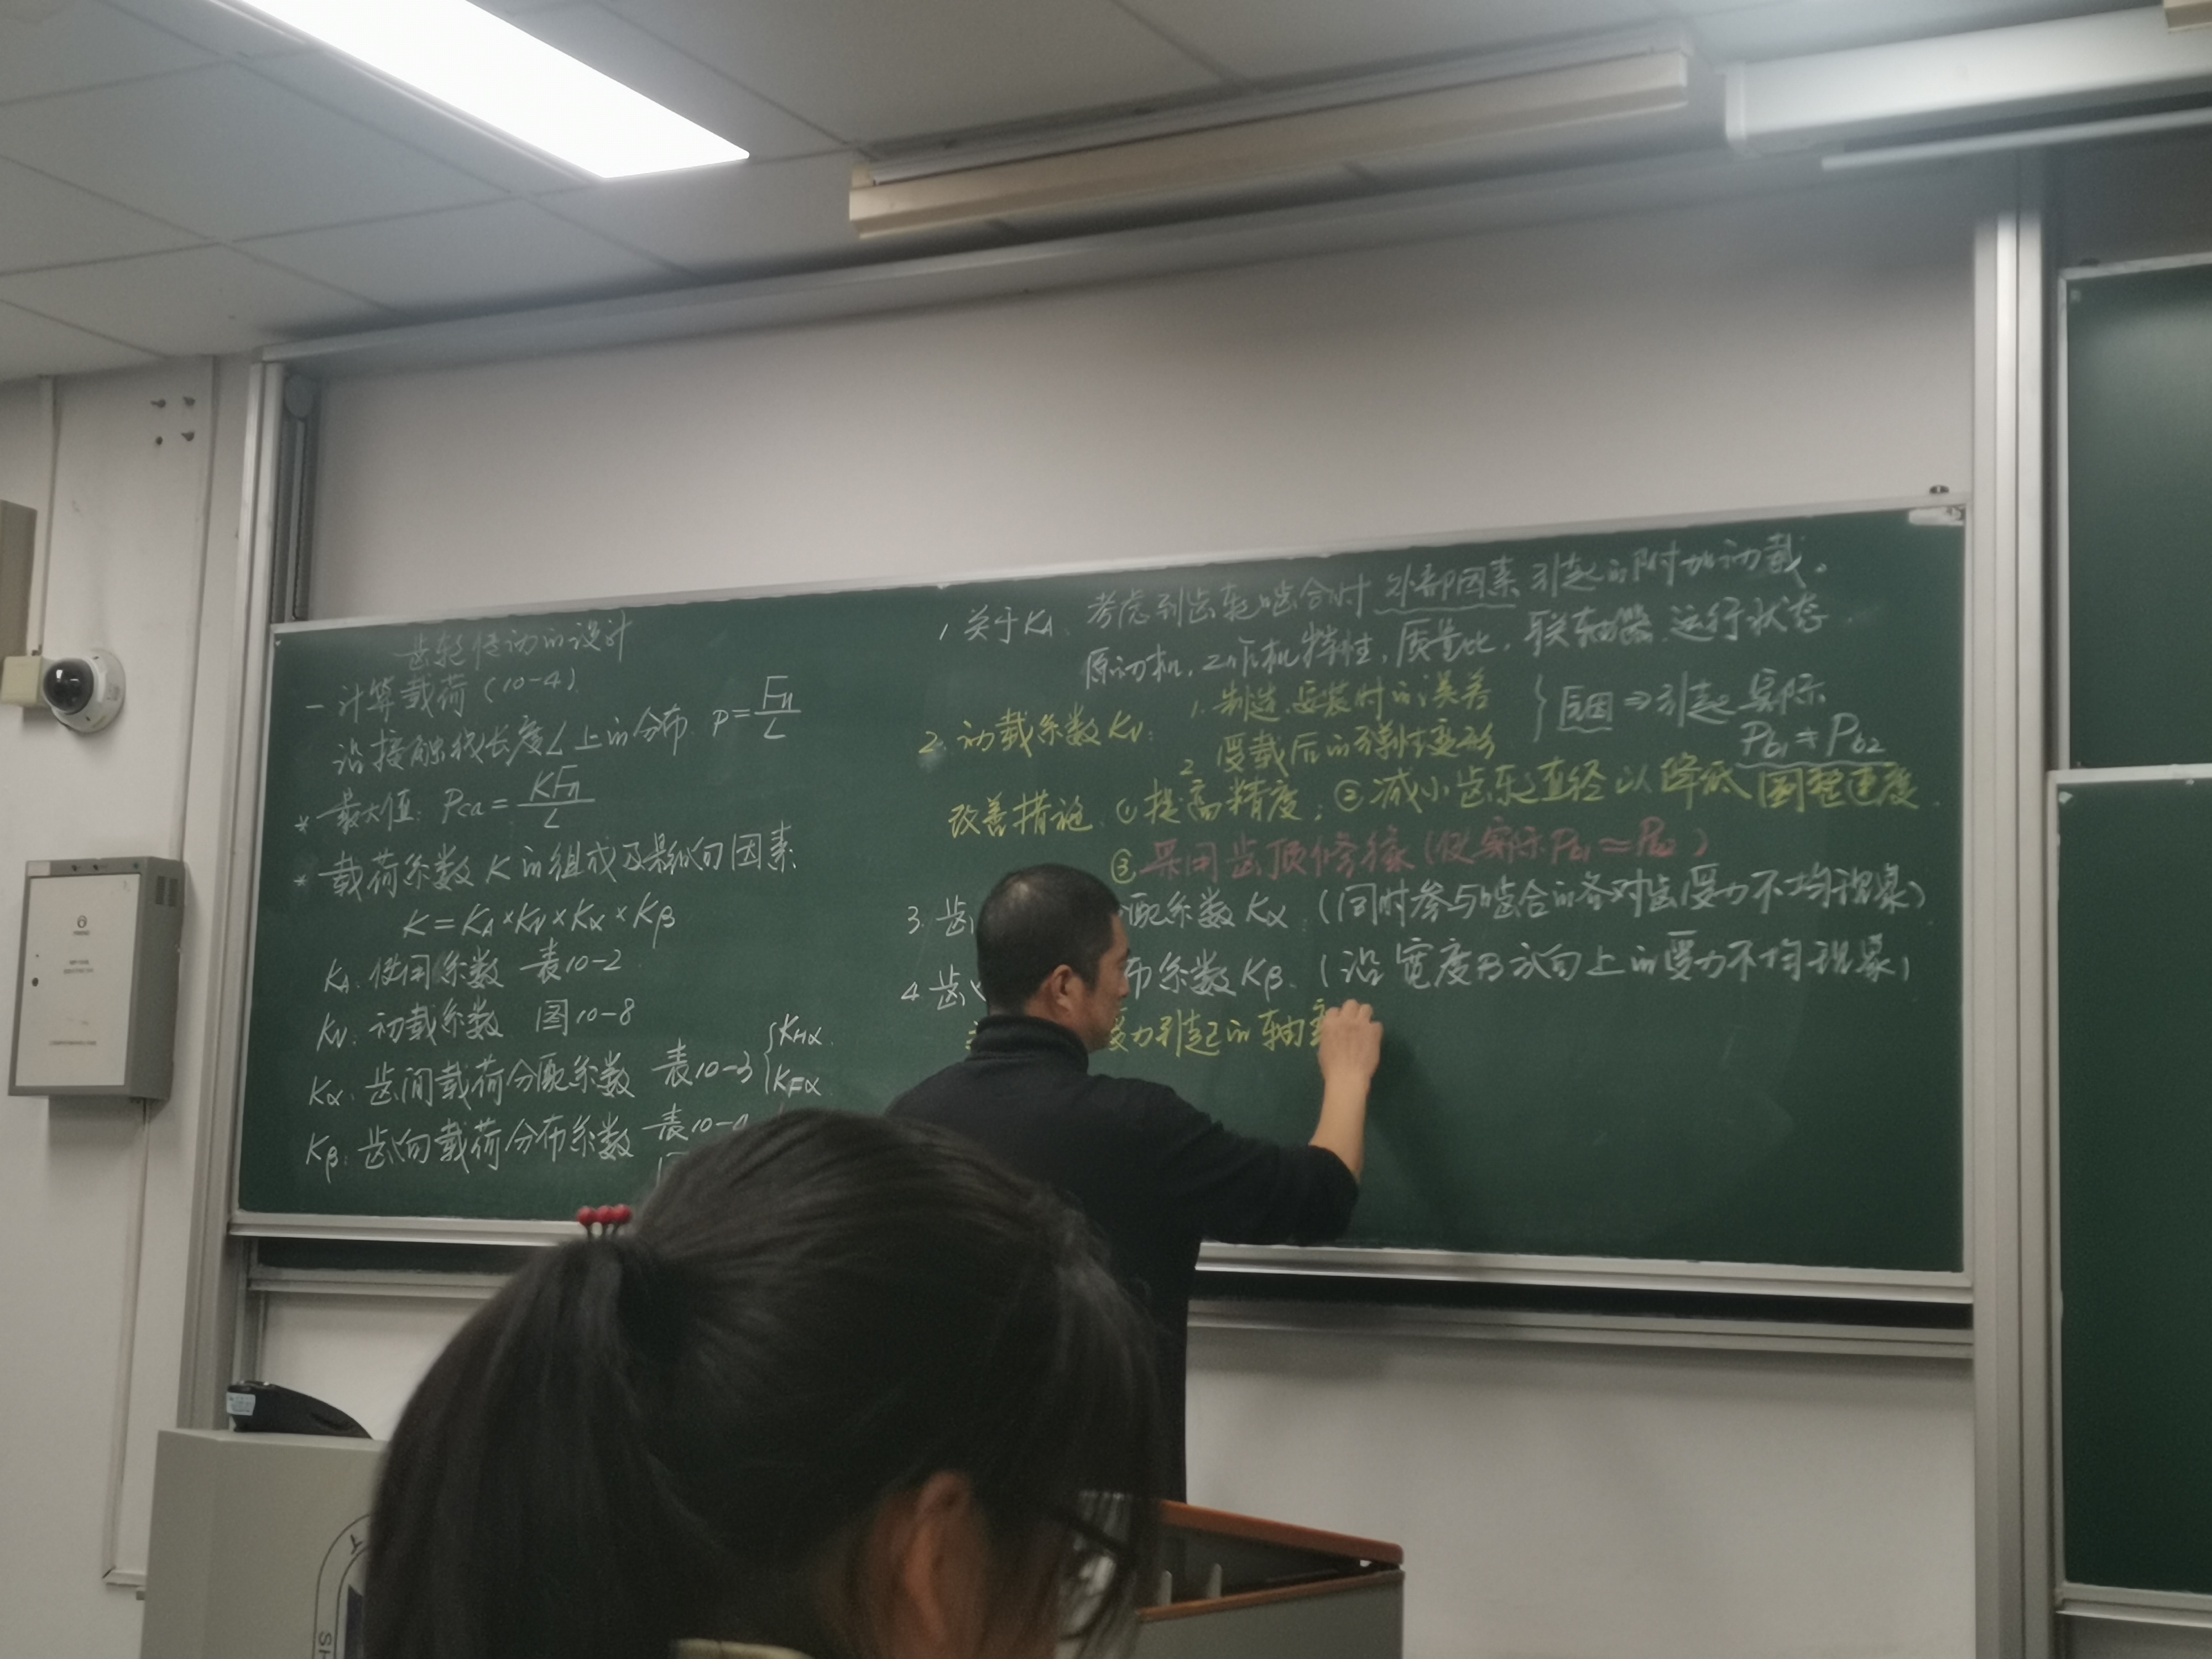 齿轮传动的设计
一 计算载荷(10-4)
沿接触线长度L上的分布 P=Fn/L
* 最大值: Pca=KFn/L
* 载荷系数K的组成及影响因素
K=KA×KV×Kα×Kβ
KA: 使用系数 表10-2
KV: 动载系数 图10-8
Kα: 齿间载荷分配系数 表10-3 { KHα KFα
Kβ: 齿向载荷分布系数 表10-4
1 关于KA: 考虑到齿轮啮合时 外部因素 引起的附加动载。
原动机,工作机特性,质量比,联轴器,运行状态
2. 动载系数KV: 1. 制造.安装时的误差
2 受载后的弹性变形
} 原因⇒引起 实际
Pb1≠Pb2
改善措施 ①提高精度; ②减小齿轮直径以降低圆整速度
③采用齿顶修缘(使实际Pb1≈Pb2)
3. 齿 配系数Kα: (同时参与啮合的各对齿受力不均现象)
4 齿 布系数Kβ. (沿宽度B方向上的受力不均现象)
受力引起的轴